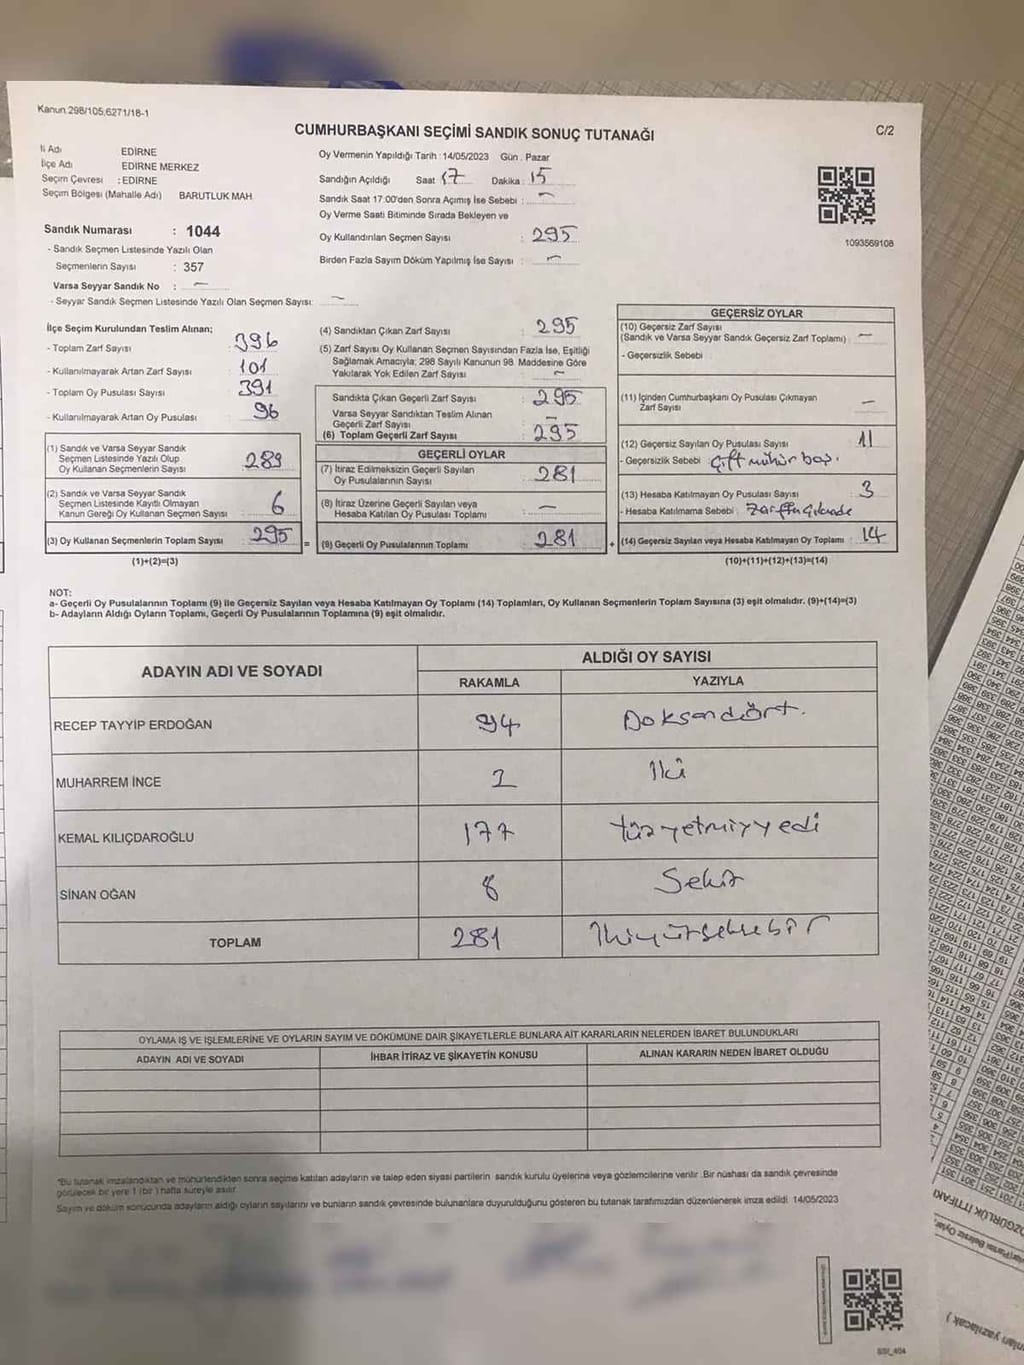 Kanun.298/105,6271/18-1
CUMHURBAŞKANI SEÇİMİ SANDIK SONUÇ TUTANAĞI
C/2
İl Adı EDİRNE
İlçe Adı EDİRNE MERKEZ
Seçim Çevresi : EDİRNE
Seçim Bölgesi (Mahalle Adı) BARUTLUK MAH
Oy Vermenin Yapıldığı Tarih : 14/05/2023 Gün . Pazar
Sandığın Açıldığı Saat 17 Dakika : 15
Sandık Saat 17.00'den Sonra Açımış İse Sebebi : -
Oy Verme Saati Bitiminde Sırada Bekleyen ve
Oy Kullandırılan Seçmen Sayısı : 295
Birden Fazla Sayım Döküm Yapılmış İse Sayısı : -
1093569108
Sandık Numarası : 1044
- Sandık Seçmen Listesinde Yazılı Olan
Seçmenlerin Sayısı : 357
Varsa Seyyar Sandık No : -
- Seyyar Sandık Seçmen Listesinde Yazılı Olan Seçmen Sayısı: -
İlçe Seçim Kurulundan Teslim Alınan;
- Toplam Zarf Sayısı : 396
- Kullanılmayarak Artan Zarf Sayısı : 101
- Toplam Oy Pusulası Sayısı : 391
- Kullanılmayarak Artan Oy Pusulası : 96
(1) Sandık ve Varsa Seyyar Sandık
Seçmen Listesinde Yazılı Olup
Oy Kullanan Seçmenlerin Sayısı : 289
(2) Sandık ve Varsa Seyyar Sandık
Seçmen Listesinde Kayıtlı Olmayan
Kanun Gereği Oy Kullanan Seçmen Sayısı : 6
(3) Oy Kullanan Seçmenlerin Toplam Sayısı : 295
(1)+(2)=(3)
(4) Sandıktan Çıkan Zarf Sayısı : 295
(5) Zarf Sayısı Oy Kullanan Seçmen Sayısından Fazla İse, Eşitliği
Sağlamak Amacıyla; 298 Sayılı Kanunun 98. Maddesine Göre
Yakılarak Yok Edilen Zarf Sayısı : -
Sandıkta Çıkan Geçerli Zarf Sayısı : 295
Varsa Seyyar Sandıktan Teslim Alınan
Geçerli Zarf Sayısı : -
(6) Toplam Geçerli Zarf Sayısı : 295
GEÇERLİ OYLAR
(7) İtiraz Edilmeksizin Geçerli Sayılan
Oy Pusulasının Sayısı : 281
(8) İtiraz Üzerine Geçerli Sayılan veya
Hesaba Katılan Oy Pusulası Toplamı : -
= (9) Geçerli Oy Pusulalarının Toplamı : 281 +
GEÇERSİZ OYLAR
(10) Geçersiz Zarf Sayısı
(Sandık ve Varsa Seyyar Sandık Geçersiz Zarf Toplamı) : -
- Geçersizlik Sebebi :
(11) İçinden Cumhurbaşkanı Oy Pusulası Çıkmayan
Zarf Sayısı : -
(12) Geçersiz Sayılan Oy Pusulası Sayısı : 11
- Geçersizlik Sebebi : Çift mühür bas.
(13) Hesaba Katılmayan Oy Pusulası Sayısı : 3
- Hesaba Katılmama Sebebi :
(14) Geçersiz Sayılan veya Hesaba Katılmayan Oy Toplamı : 14
(10)+(11)+(12)+(13)=(14)
NOT:
a- Geçerli Oy Pusulalarının Toplamı (9) ile Geçersiz Sayılan veya Hesaba Katılmayan Oy Toplamı (14) Toplamları, Oy Kullanan Seçmenlerin Toplam Sayısına (3) eşit olmalıdır. (9)+(14)=(3)
b- Adayların Aldığı Oyların Toplamı, Geçerli Oy Pusulalarının Toplamına (9) eşit olmalıdır.
ADAYIN ADI VE SOYADI ALDIĞI OY SAYISI
RAKAMLA YAZIYLA
RECEP TAYYİP ERDOĞAN 94 Doksandört.
MUHARREM İNCE 2 İki
KEMAL KILIÇDAROĞLU 177 Yüzyetmişyedi
SİNAN OĞAN 8 Sekiz
TOPLAM 281 İkiyüzseksebir
OYLAMA İŞ VE İŞLEMLERİNE VE OYLARIN SAYIM VE DÖKÜMÜNE DAİR ŞİKAYETLERLE BUNLARA AİT KARARLARIN NELERDEN İBARET BULUNDUKLARI
ADAYIN ADI VE SOYADI İHBAR İTİRAZ VE ŞİKAYETİN KONUSU ALINAN KARARIN NEDEN İBARET OLDUĞU
*Bu tutanak imzalandıktan ve mühürlendikten sonra seçime katılan adayların ve talep eden siyasi partilerin sandık kurulu üyelerine veya gözlemcilerine verilir. Bir nüshası da sandık çevresinde
görülecek bir yere 1 (bir) hafta süreyle asılır.
Sayım ve döküm sonucunda adayların aldığı oyların sayılarını ve bunların sandık çevresinde bulunanlara duyurulduğunu gösteren bu tutanak tarafımızdan düzenlenerek imza edildi. 14/05/2023